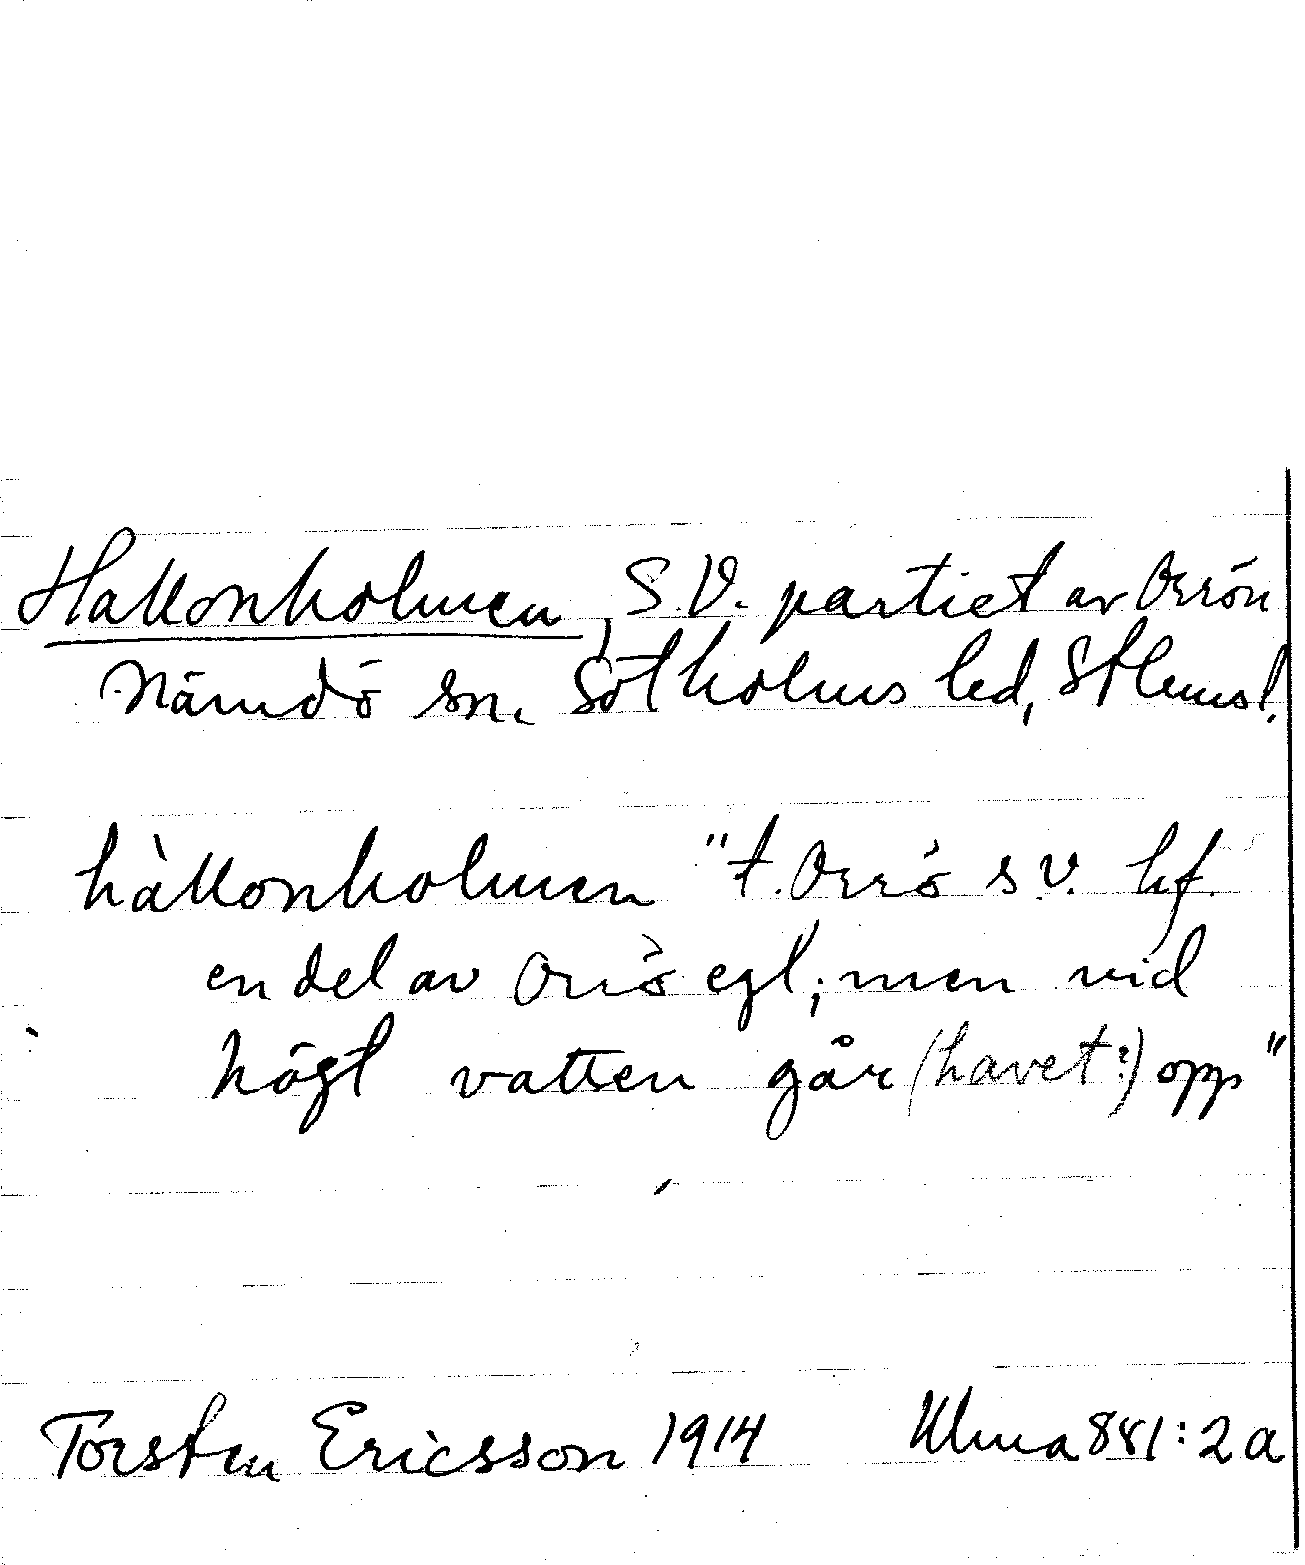 Hallonholmen, S.V. partiet av Orrön
Nämdö sn. Sotholms hd, Sthlms l.
hàllonholmen "t. Orrö s v. hf.
en del av Orrö egl; men vid
högt vatten går (havet?) opp"
Torsten Ericsson 1914 Ulma 881:2a